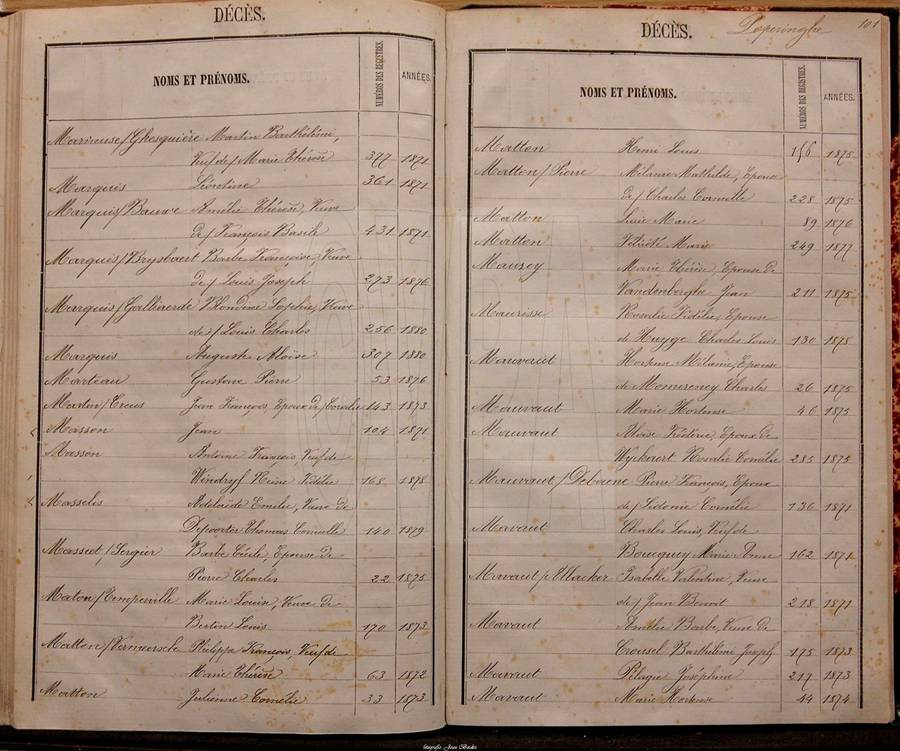 DÉCÈS.
NOMS ET PRÉNOMS. NUMÉROS DES REGISTRES. ANNÉES.
Marieuse/Ghesquière Martin Barthélémi,
Veuf de/ Marie Thérèse 377 1871
Marquis Léontine 361 1871
Marquis/Bauwe Amélie Thérèse, Veuve
de/ François Basile 431 1871
Marquis/Brysbaert Barbe Françoise, Veuve
de/ Louis Joseph 273 1876
Marquis/Galliaerde Blondine Sophie, Veuve
de/ Louis Charles 256 1880
Marquis Auguste Aloïse 307 1880
Marteau Gustave Pierre 53 1876
Martin/Creus Jean François, Epoux de/ Coralie 143 1873
Masson Jean 104 1871
Masson Antoine François, Veuf de
Reine Fidélie 168 1878
Masselis Adélaïde Emilie, Veuve de
Depoorter Thomas Corneille 140 1879
Massiet/Sergier Barbe Cécile, Epouse de
Pierre Charles 22 1875
Maton/Tempeville Marie Louise, Veuve de
Berton Louis 170 1873
Matton/Vermeersch Philippe François, Veuf de
Marie Thérèse 63 1872
Matton Julienne Cornélie 33 1873
DÉCÈS. Poperinghe 101
NOMS ET PRÉNOMS. NUMÉROS DES REGISTRES. ANNÉES.
Matton Henri Louis 156 1875
Matton/Pierre Mélanie Mathilde, Epouse
de/ Charles Corneille 228 1875
Matton Lucie Marie 89 1876
Matton Félicité Marie 249 1877
Mausey Marie Thérèse, Epouse de
Vandenberghe Jean 211 1875
Maurisse Rosalie Fidélie, Epouse
de Huyge Charles Louis 130 1878
Mauvaut Hortense Mélanie, Epouse
de Momerency Charles 26 1875
Mauvaut Marie Hortense 40 1875
Mauvaut Aloïse Fréderic, Epoux de
Wyckaert Rosalie Cornélie 285 1875
Mauvaut/Debaene Pierre François, Epoux
de/ Sidonie Cornélie 136 1871
Mavaut Charles Louis, Veuf de
Boucquey Marie Anne 162 1871
Mavaut/ Isabelle Valentine, Veuve
de/ Jean Benoit 218 1871
Mavaut Amélie Barbe, Veuve de
Crousel Barthélémi Joseph 175 1873
Mavaut Pélagie Joséphine 217 1873
Mavaut Marie Hortense 44 1874